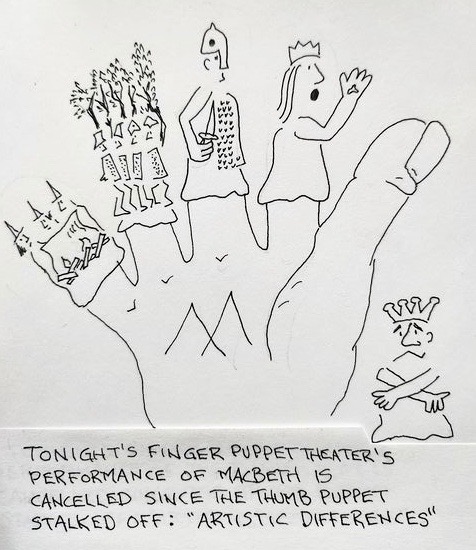 TONIGHT'S FINGER PUPPET THEATER'S
PERFORMANCE OF MACBETH IS
CANCELLED SINCE THE THUMB PUPPET
STALKED OFF: "ARTISTIC DIFFERENCES"